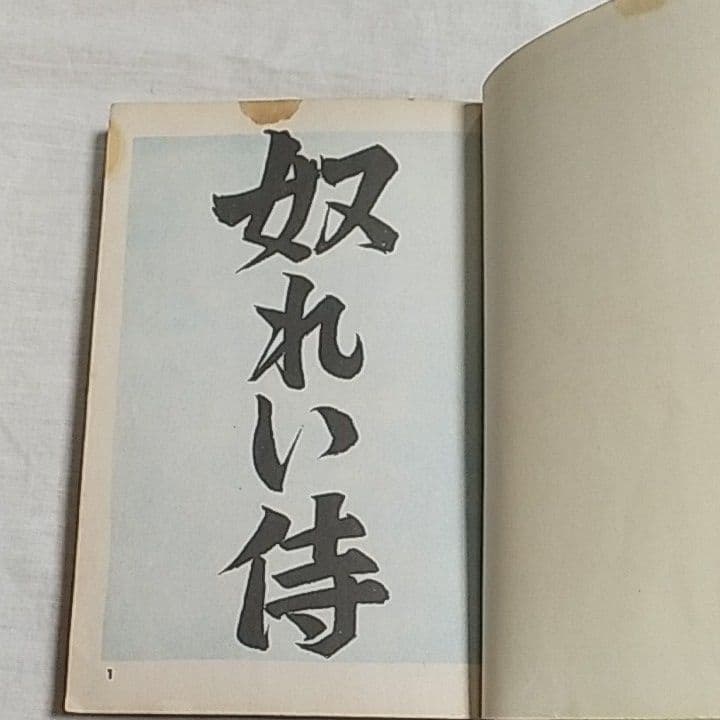 奴れい侍
1